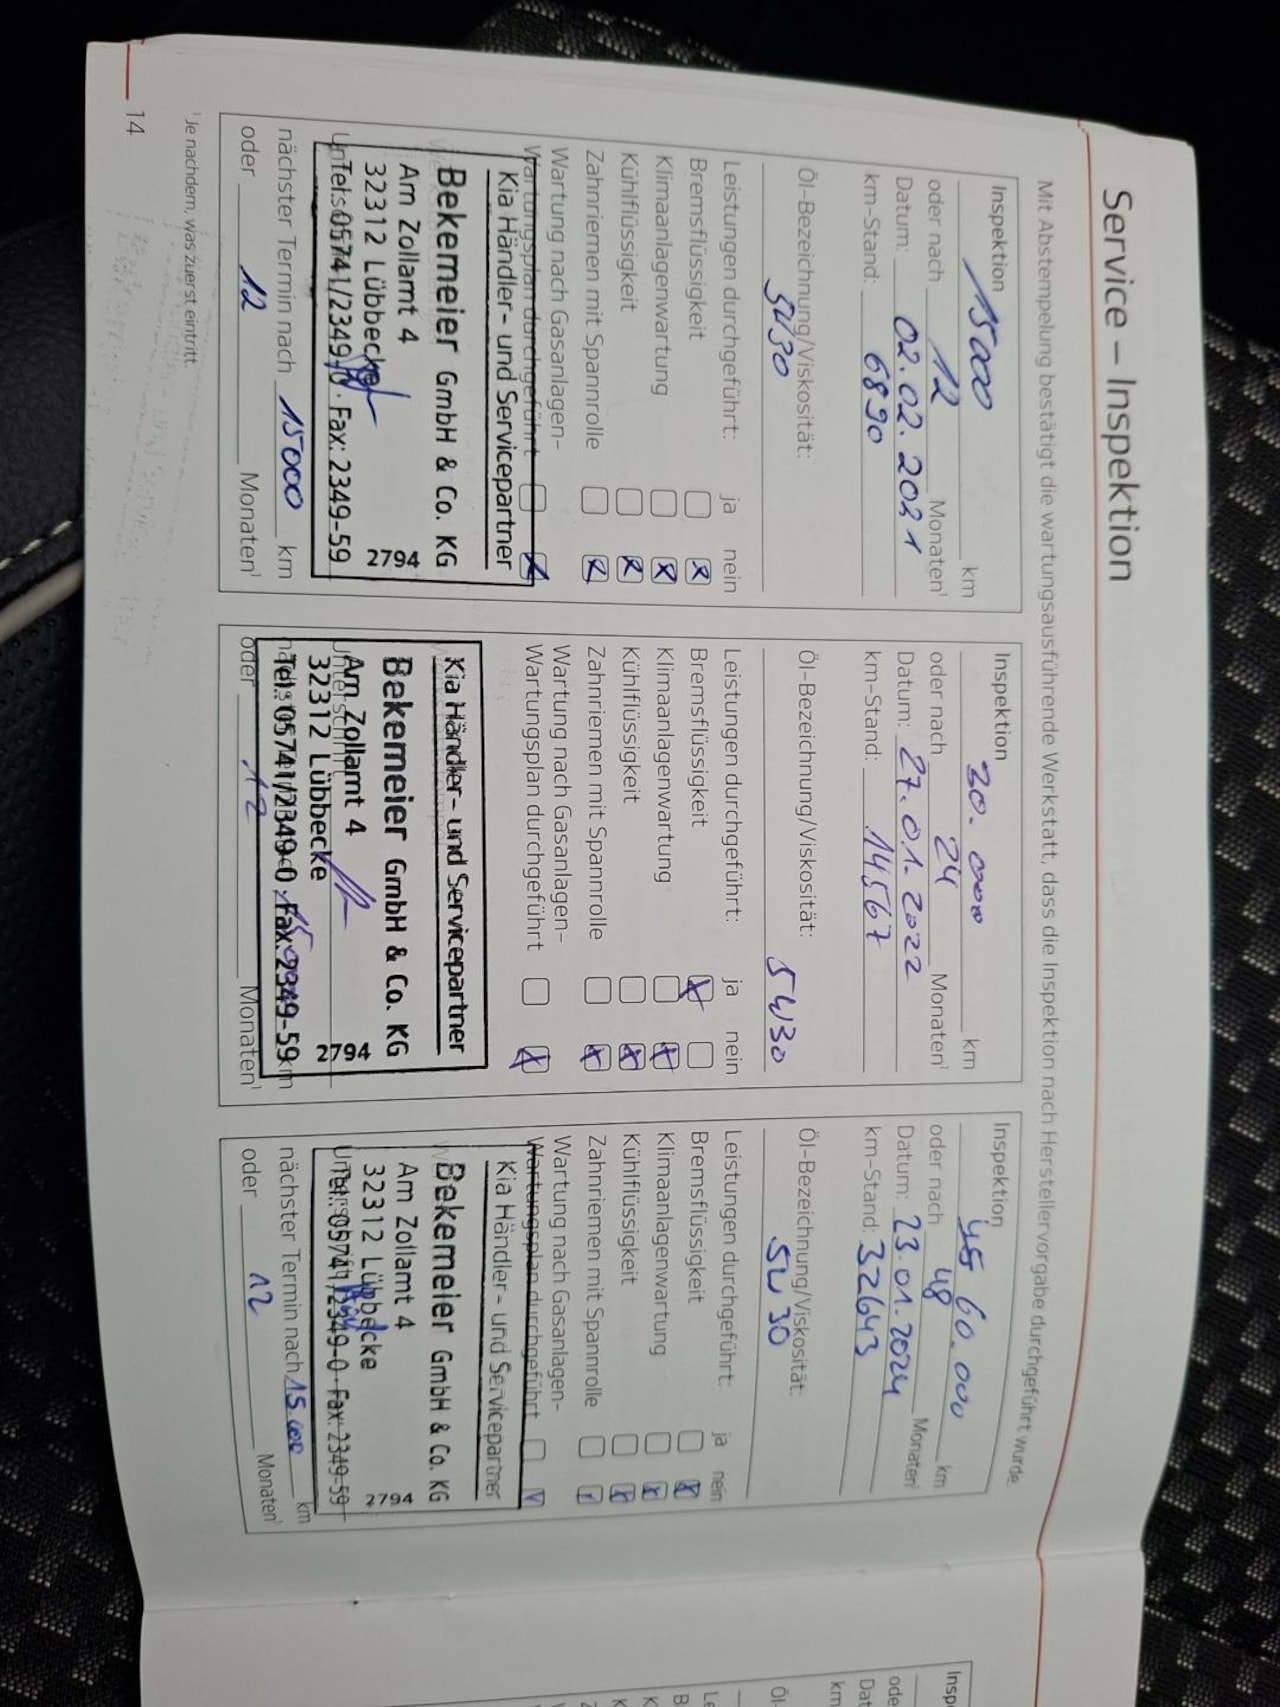 Service – Inspektion
Mit Abstempelung bestätigt die wartungsausführende Werkstatt, dass die Inspektion nach Herstellervorgabe durchgeführt wurde.
Inspektion
15000 km
oder nach 12 Monaten¹
Datum: 02.02.2021
km-Stand: 6890
Öl-Bezeichnung/Viskosität:
5W30
Leistungen durchgeführt: ja nein
Bremsflüssigkeit x
Klimaanlagenwartung x
Kühlflüssigkeit x
Zahnriemen mit Spannrolle x
Wartung nach Gasanlagen-
Wartungsplan durchgeführt x
Kia Händler- und Servicepartner
Bekemeier GmbH & Co. KG
Am Zollamt 4 2794
32312 Lübbecke
Tel.: 05741/2349-0 · Fax: 2349-59
nächster Termin nach 15000 km
oder 12 Monaten¹
Inspektion
30.000 km
oder nach 24 Monaten¹
Datum: 27.01.2022
km-Stand: 14567
Öl-Bezeichnung/Viskosität:
5W30
Leistungen durchgeführt: ja nein
Bremsflüssigkeit x
Klimaanlagenwartung x
Kühlflüssigkeit x
Zahnriemen mit Spannrolle x
Wartung nach Gasanlagen-
Wartungsplan durchgeführt x
Kia Händler- und Servicepartner
Bekemeier GmbH & Co. KG
Am Zollamt 4
32312 Lübbecke 2794
Tel.: 05741/2349-0 Fax: 2349-59 km
oder 12 Monaten¹
Inspektion
45 60.000 km
oder nach 48 Monaten¹
Datum: 23.01.2024
km-Stand: 32643
Öl-Bezeichnung/Viskosität:
5W30
Leistungen durchgeführt: ja nein
Bremsflüssigkeit x
Klimaanlagenwartung x
Kühlflüssigkeit x
Zahnriemen mit Spannrolle
Wartung nach Gasanlagen-
Wartungsplan durchgeführt
Kia Händler- und Servicepartner
Bekemeier GmbH & Co. KG
Am Zollamt 4
32312 Lübbecke 2794
Tel.: 05741/2349-0 · Fax: 2349-59
nächster Termin nach 15.000 km
oder 12 Monaten¹
¹ Je nachdem, was zuerst eintritt.
14